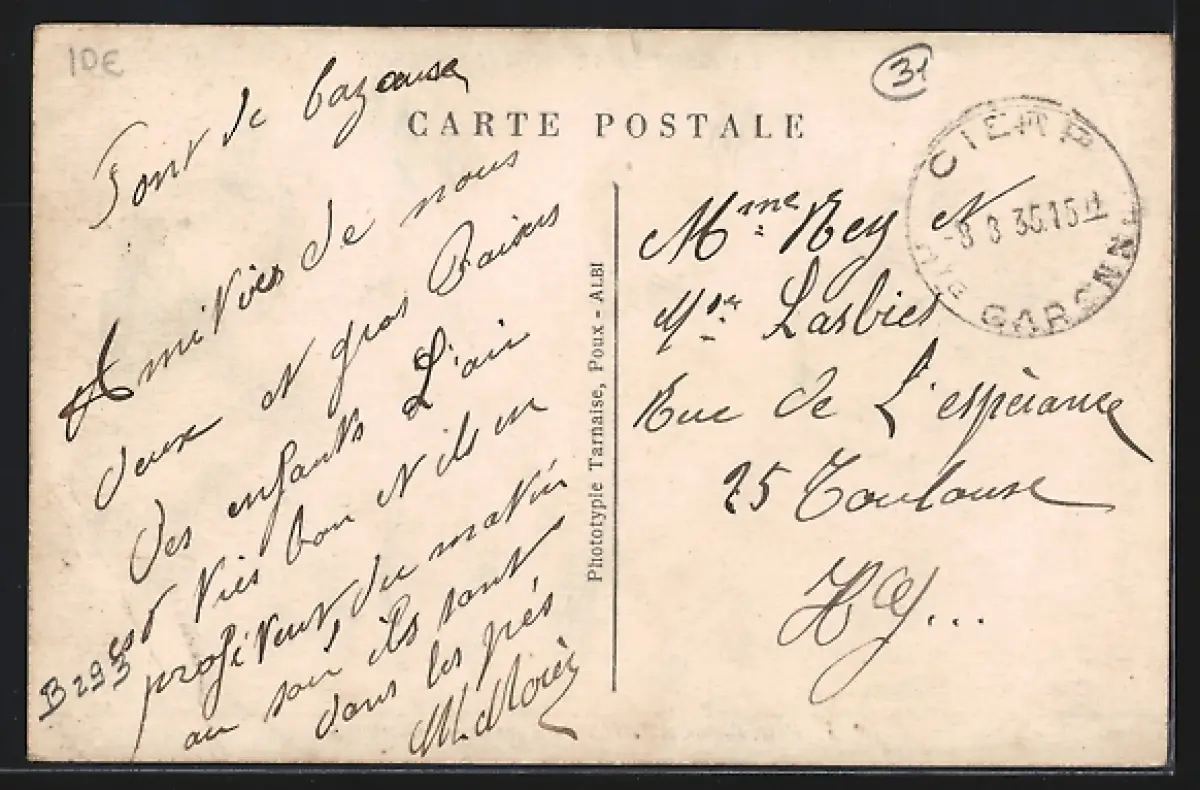 10€
31
CARTE POSTALE
de
Amitiés de nous
deux et gros Baisers
des enfants L'air
est très bon et ils en
profitent, du matin
au soir ils sont
dans les prés
B293
Phototypie Tarnaise, Poux - ALBI
CIERP
-8 8 35.15
GARONNE
Mme Rey
Lasbies
Rue de L'espérance
25 Toulouse